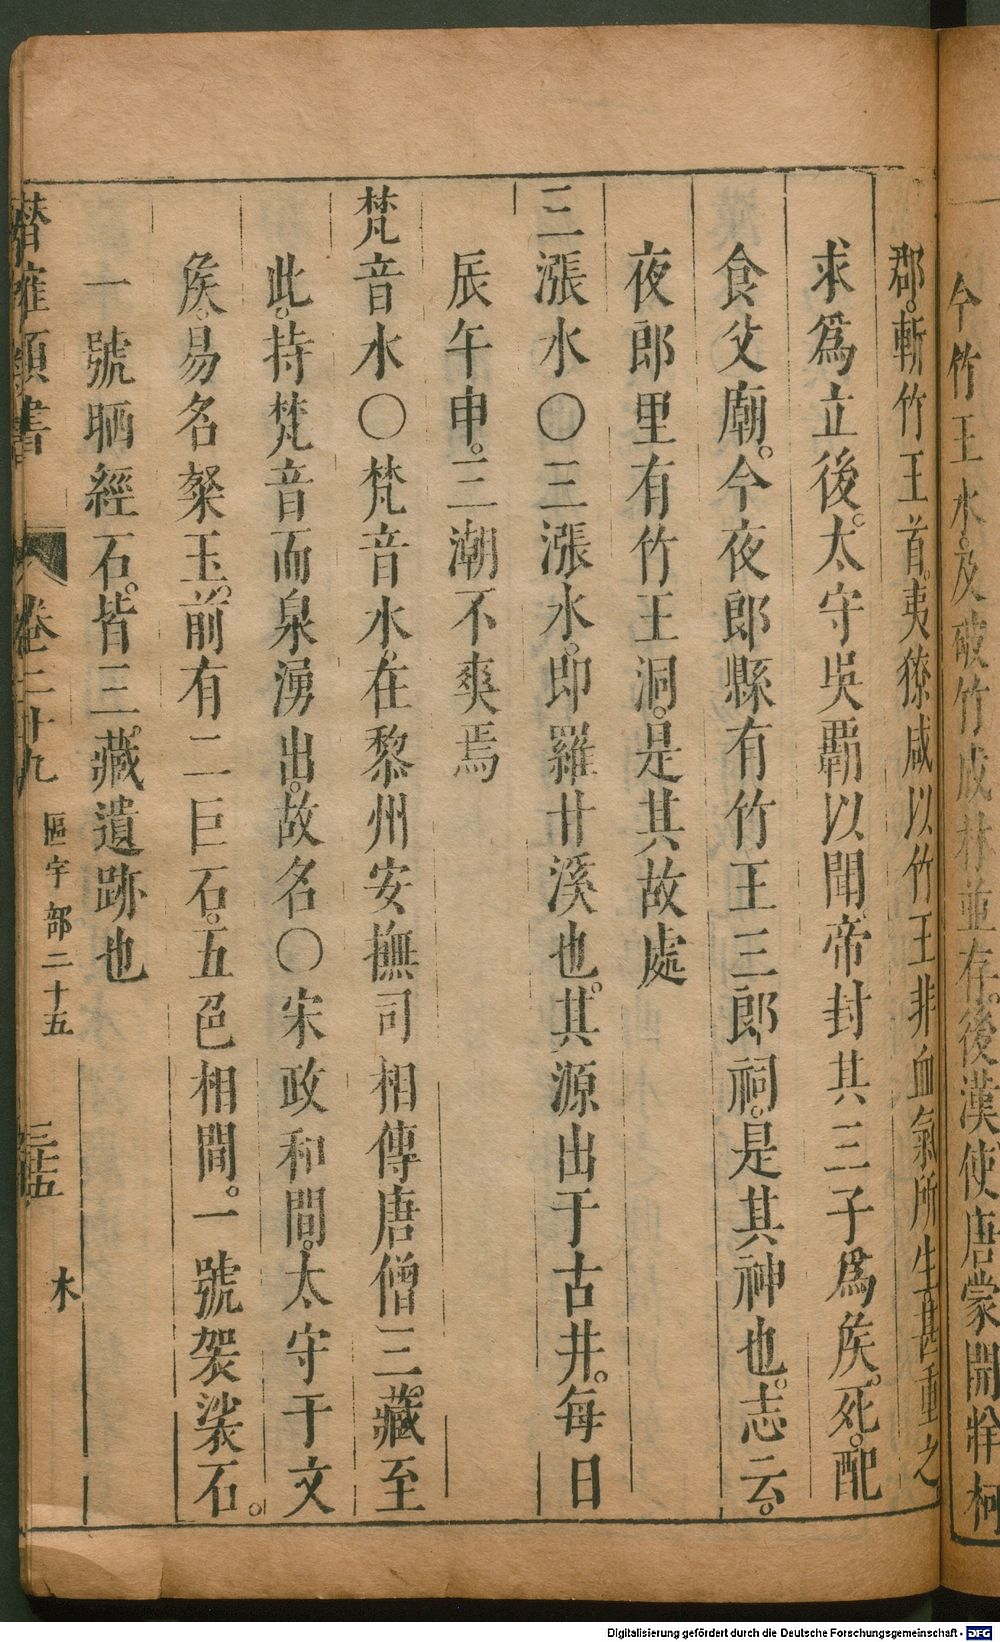 今竹王水。及破竹成林並存。後漢使唐蒙開牂柯
郡。斬竹王首。夷獠咸以竹王非血氣所生甚重之
求爲立後。太守吳覇以聞帝封其三子爲矦。死。配
食父廟。今夜郎縣有竹王三郎祠。是其神也。志云。
夜郎里有竹王洞。是其故處
三漲水〇三漲水。即羅廿溪也。其源出于古井。每日
辰午申。三潮不爽焉
梵音水〇梵音水。在黎州安撫司相傳唐僧三藏至
此。持梵音而泉湧出。故名〇宋政和間。太守于文
矦。易名粲玉。前有二巨石。五色相間。一號袈裟石。
一號晒經石。皆三藏遺跡也
潛確類書 卷二十九 區宇部二十五 三十五 木
Digitalisierung gefördert durch die Deutsche Forschungsgemeinschaft - DFG